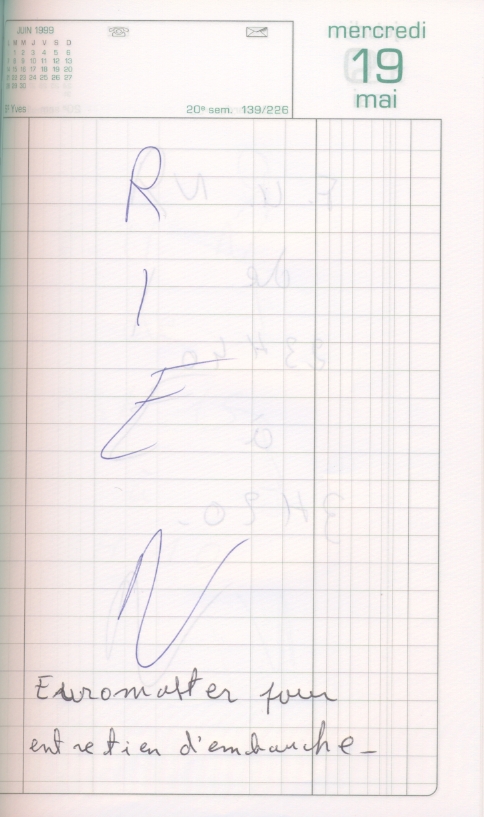 JUIN 1999
L M M J V S D
1 2 3 4 5 6
7 8 9 10 11 12 13
14 15 16 17 18 19 20
21 22 23 24 25 26 27
28 29 30
mercredi
19
mai
Yves
20e sem. 139/226
R
I
E
N
Euromaster pour
entretien d'embauche_